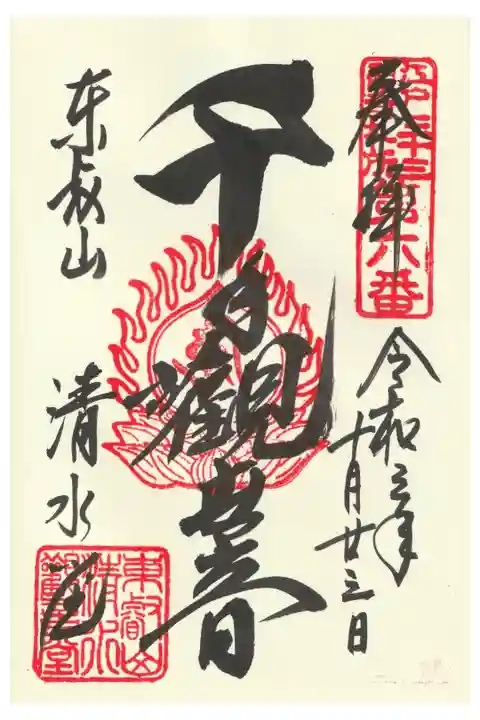 奉拝
第六番
令和三年
十月廿三日
千手観世音
東叡山
清水堂
東叡山
清水
觀音堂